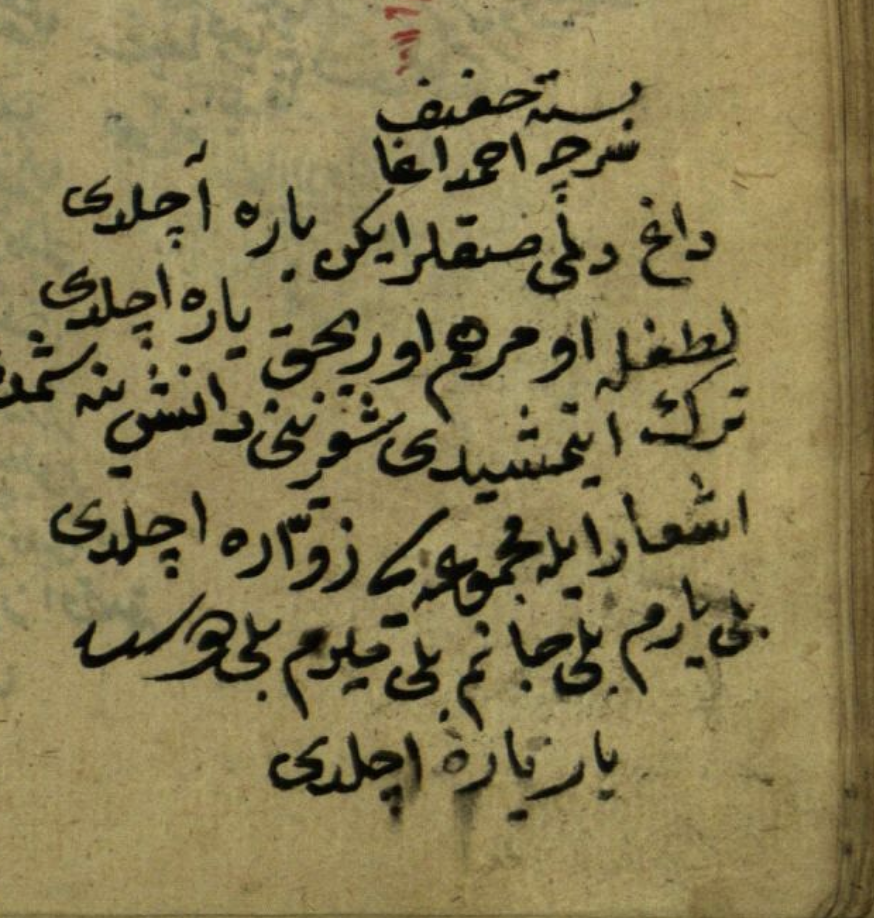 بسته خفیف
سرچه احمد اغا
داغ دلی صقلر ایکن یاره آچلدی
لطفله او مرهم اوریجق یاره اچلدی
ترك ایتمشیدی دانش
اشعار ایله مجموعه زوّاره اچلدی
بلی یارم بلی جانم بلی بلی
یار یاره اچلدی